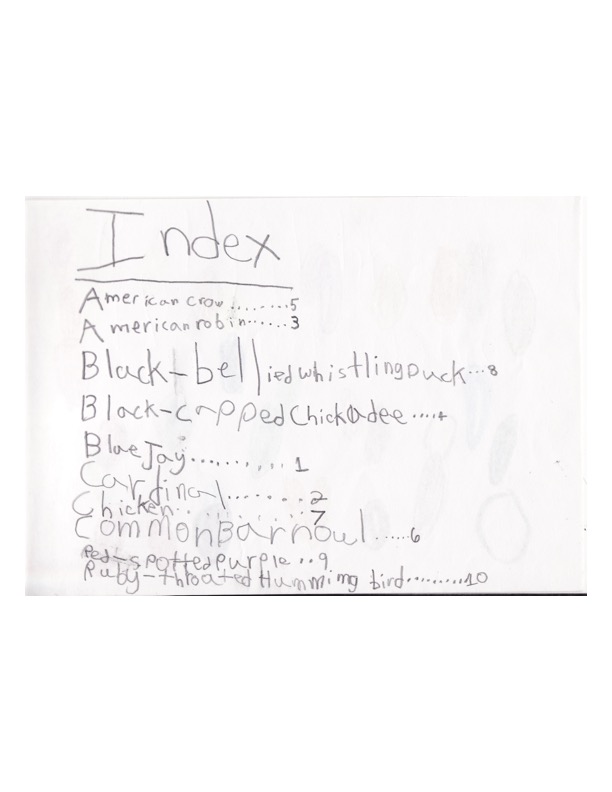 Index
American crow........5
American robin......3
Black-bellied whistling Duck...8
Black-capped Chickadee....4
Blue Jay.......... 1
Cardinal....... 2
Chicken............7
Common Barn owl.....6
Red-spotted Purple..9
Ruby-throated Humming bird.........10